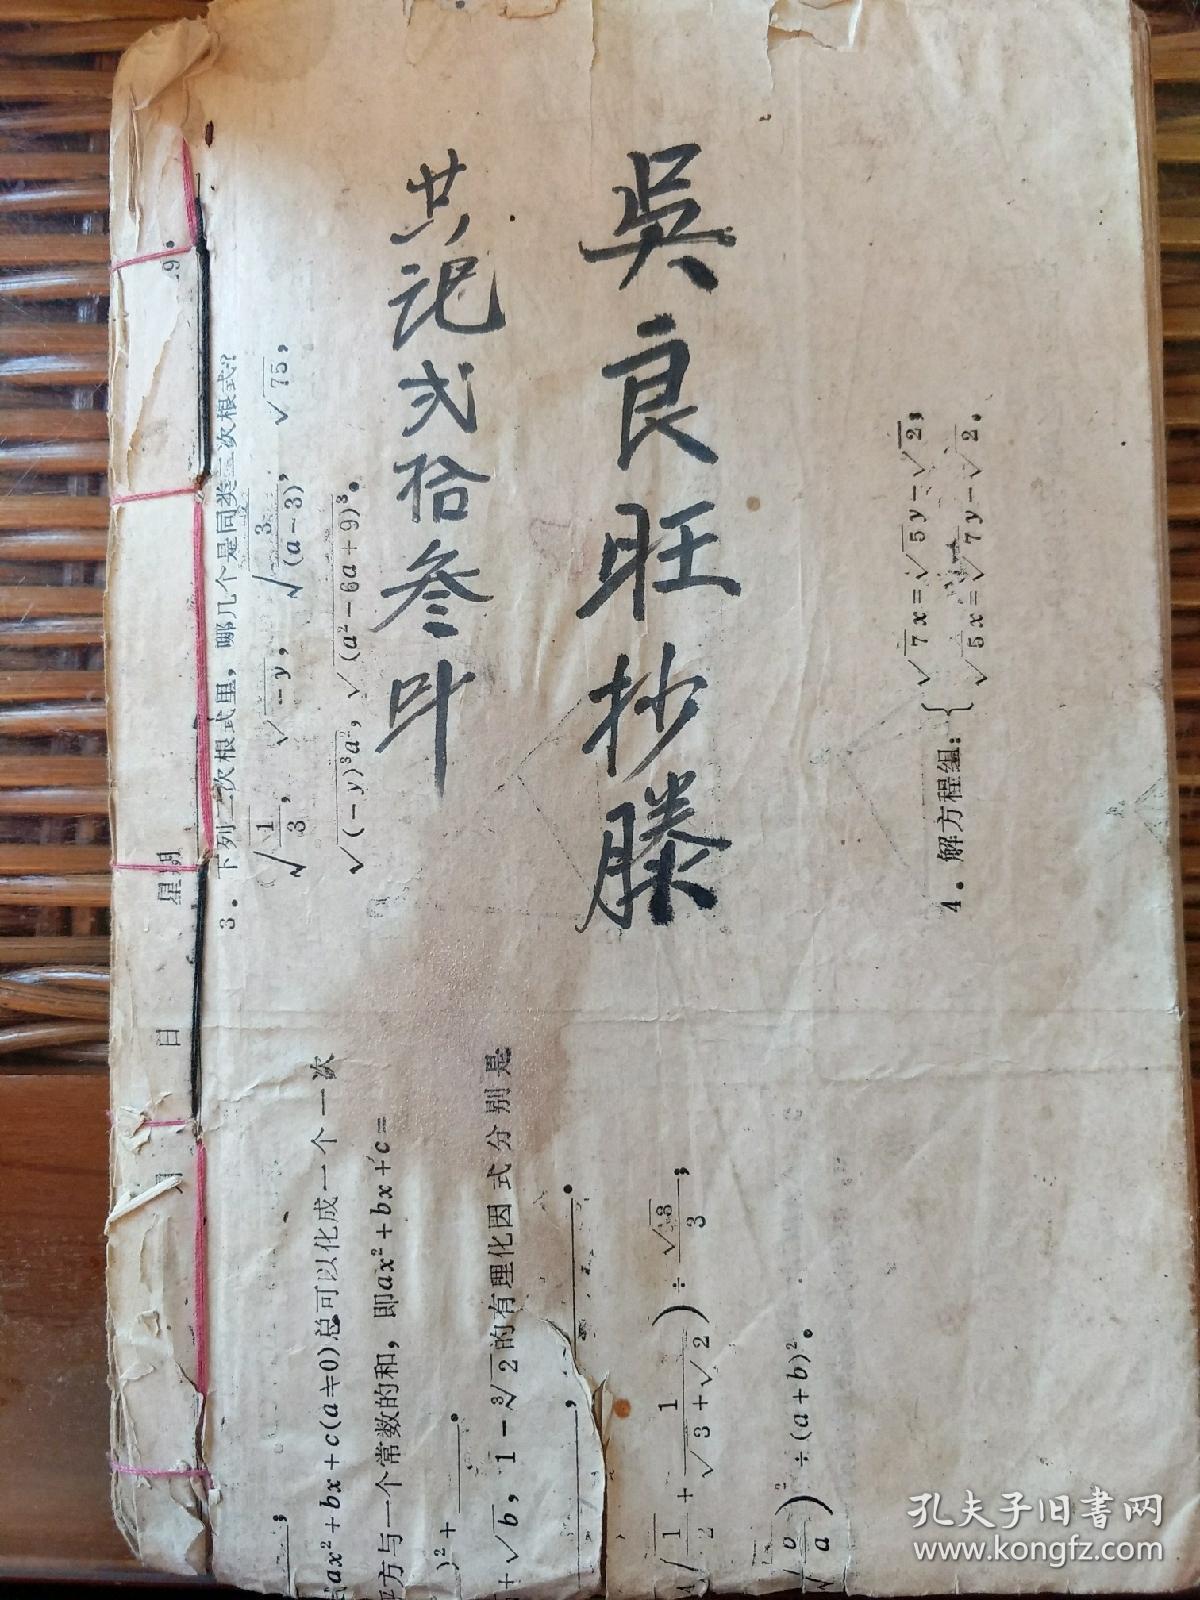 吳良旺抄滕
共記弍拾叁叶
9。
星期
日
月
3．下列二次根式里，哪几个是同类二次根式？
√(1/3)， √(-y)， √(3/(a-3))， √75，
√((-y)³a²)， √((a²-6a+9)³)。
4．解方程组：{ √7x=√5y-√2；
√5x=√7y-√2。
ax²+bx+c(a≠0)总可以化成一个一次
平方与一个常数的和，即ax²+bx+c=
)²+____．
+√b，1-∛2的有理化因式分别是
____，____．
√(1/2)+1/(√3+√2))÷√3/3；
√(b/a))²÷(a+b)²。
孔夫子旧书网
www.kongfz.com